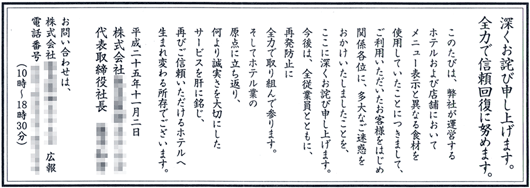 深くお詫び申し上げます。
全力で信頼回復に努めます。
このたびは、弊社が運営する
ホテルおよび店舗において
メニュー表示と異なる食材を
使用していたことにつきまして、
ご利用いただいたお客様をはじめ
関係各位に、多大なご迷惑を
おかけいたしましたことを、
ここに深くお詫び申し上げます。
今後は、全従業員とともに、
再発防止に
全力で取り組んで参ります。
そしてホテル業の
原点に立ち返り、
何より誠実さを大切にした
サービスを肝に銘じ、
再びご信頼いただけるホテルへ
生まれ変わる所存でございます。
平成二十五年十一月二日
株式会社
代表取締役社長
お問い合わせは、
株式会社 広報
電話番号
(10時～18時30分)